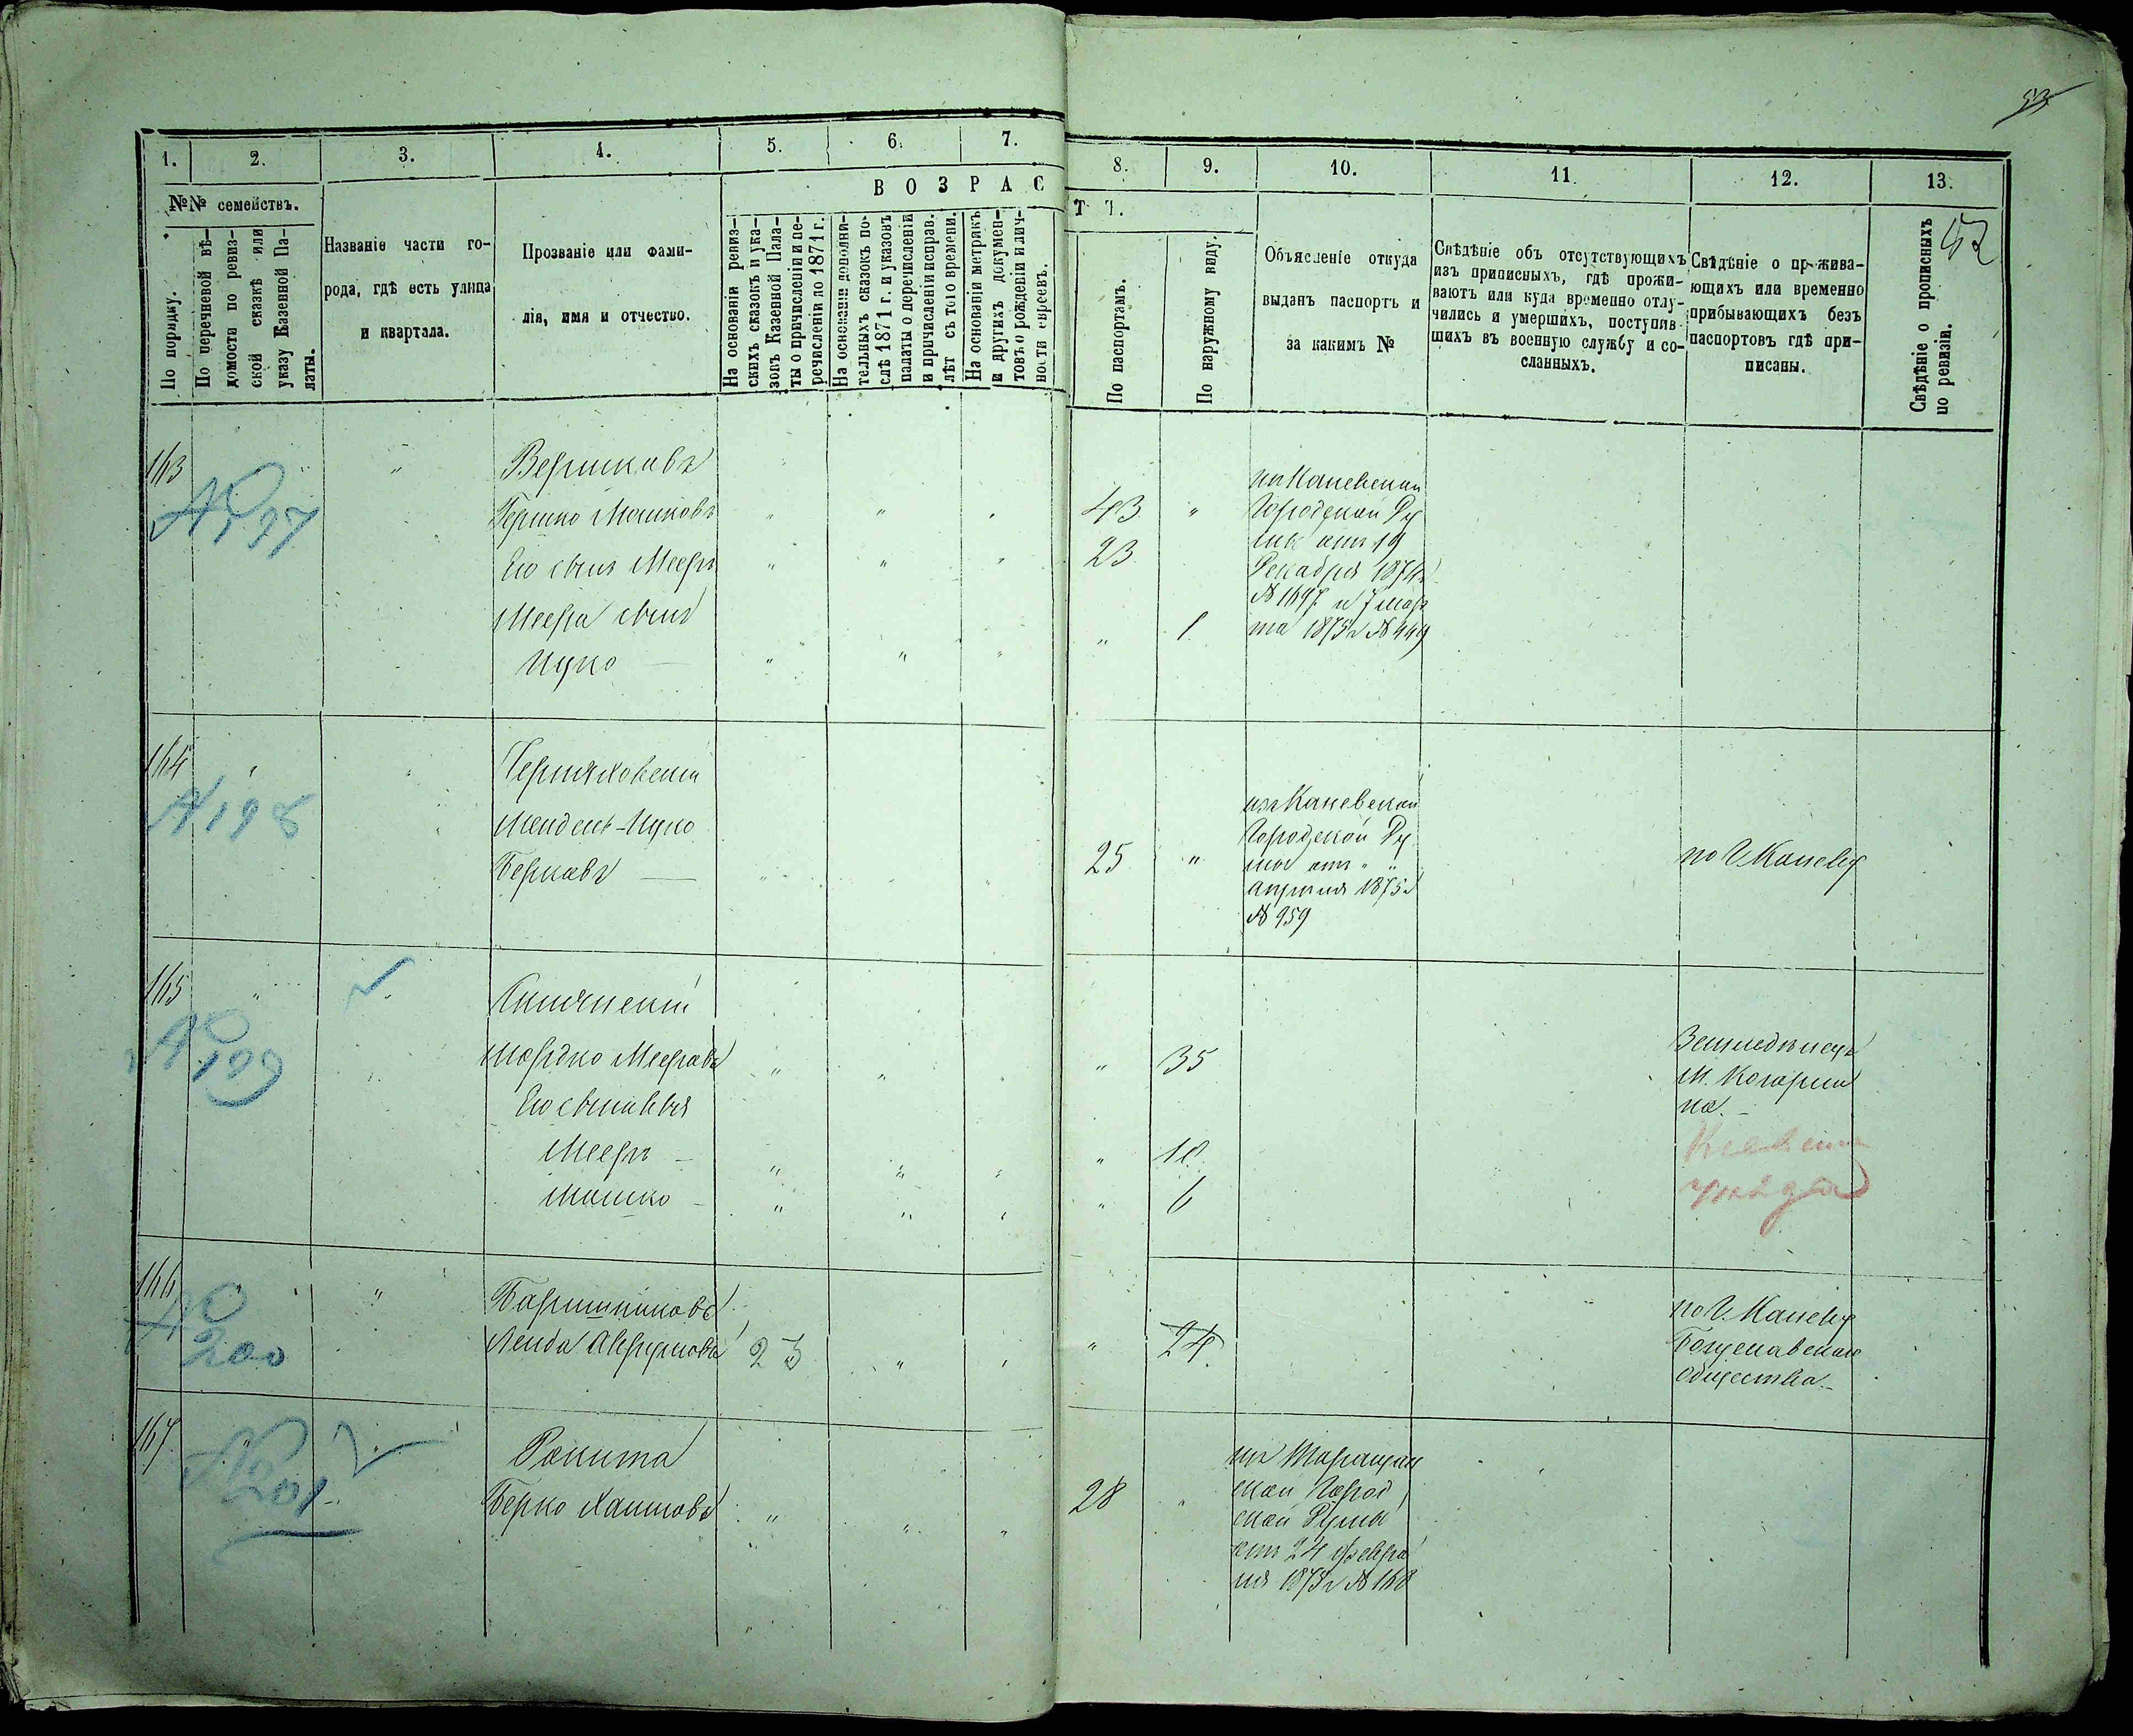 53
52
1.
2.
3.
4.
5.
6.
7.
8.
9.
10.
11.
12.
13.
№№ семействъ.
По порядку.
По перечневой вѣ-
домости по ревиз-
ской сказкѣ или
указу Казенной Па-
латы.
Названіе части го-
рода, гдѣ есть улица
и квартала.
Прозваніе или фами-
лія, имя и отчество.
ВОЗРАС
ТЪ.
На основаніи ревиз-
скихъ сказокъ и ука-
зовъ Казенной Пала-
ты о причисленіи и пе-
речисленіи до 1871 г.
На основаніи дополни-
тельныхъ сказокъ по-
слѣ 1871 г. и указовъ
палаты о перечисленіи
и причисленіи исправ.
лѣт съ того времени.
На основаніи метрикъ
и другихъ докумен-
товъ о рожденіи и лич-
ности евреевъ.
По паспортамъ.
По наружному виду.
Объясненіе откуда
выданъ паспортъ и
за какимъ №
Свѣдѣніе объ отсутствующихъ
изъ приписныхъ, гдѣ прожи-
ваютъ или куда временно отлу-
чились и умершихъ, поступив-
шихъ въ военную службу и со-
сланныхъ.
Свѣдѣніе о прожива-
ющихъ или временно
прибывающихъ безъ
паспортовъ гдѣ при-
писаны.
Свѣдѣніе о прописныхъ
по ревизіи.
163
№ 197
Гершко Мошковъ
43
Его сынъ Мееръ
23
Меера сынъ
Ицко
1
Каневской
Городской Ду
мы отъ 19
Декабря 1874 г
№ 1697 и 7 мар
та 1875 г № 449
164
№ 198
Черняховскій
Мендель-Ицко
Берковъ
25
изъ Каневской
Городской Ду
мы отъ " "
апрѣля 1875 г
№ 959
по г. Каневу
165
№ 199
Мордко Мееровъ
35
Его сыновья
Мееръ
10
Мошко
6
Земледѣлецъ
м. Кагарлы
ка.
Кіевск
уѣзда
166
№ 200
Баришниковъ
23
24
по г. Каневу
Богуславскаго
общества.
167
№ 201
Рокита
Берко Хаимовъ
28
изъ Таращан
ской Город
ской Думы
отъ 24 февра
ля 1875 г № 168